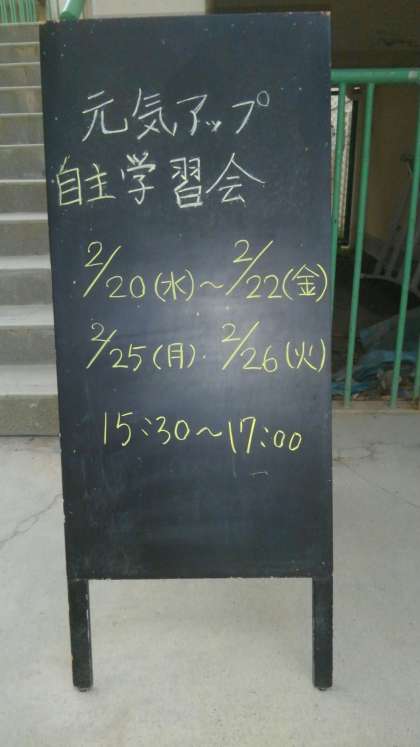 元気アップ
自主学習会
2/20(水)～2/22(金)
2/25(月)・2/26(火)
15:30～17:00